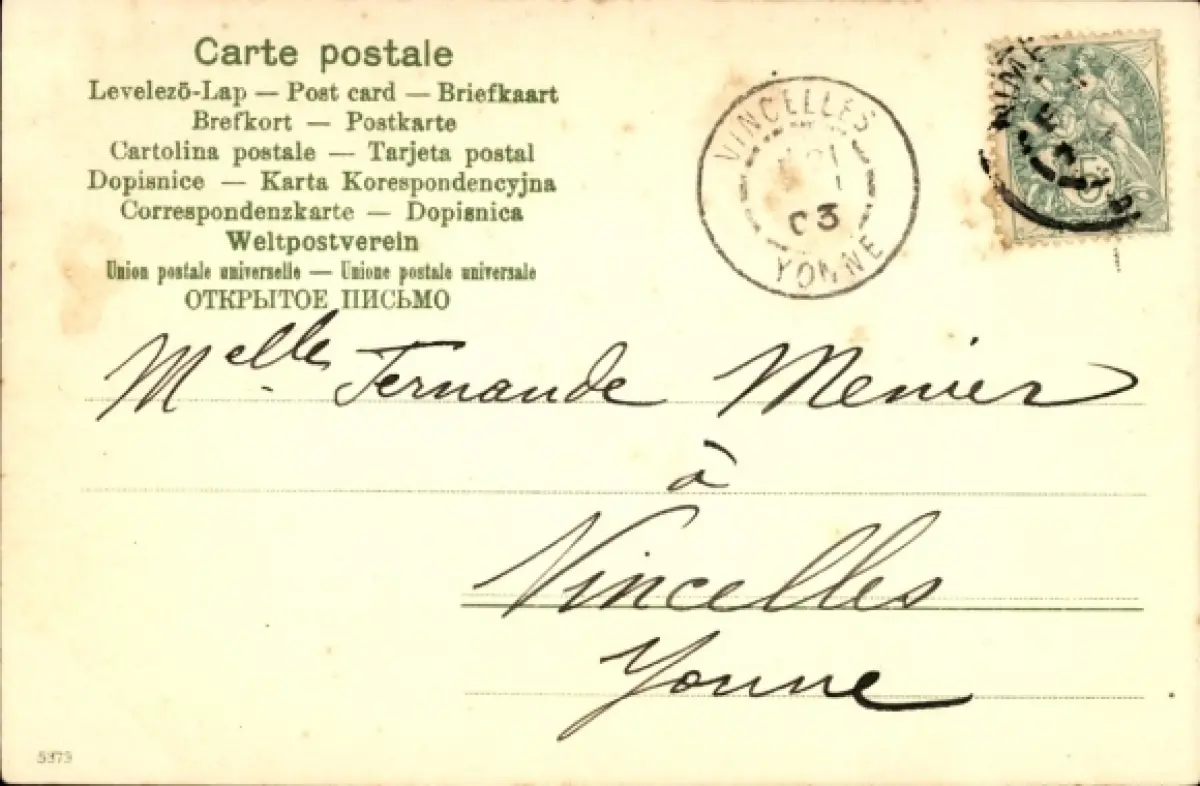 Carte postale
Levelezö-Lap — Post card — Briefkaart
Brefkort — Postkarte
Cartolina postale — Tarjeta postal
Dopisnice — Karta Korespondencyjna
Correspondenzkarte — Dopisnica
Weltpostverein
Union postale universelle — Unione postale universale
ОТКРЫТОЕ ПИСЬМО
VINCELLES
21
03
YONNE
5
Melle Fernande Menier
à
Vincelles
Yonne
5373